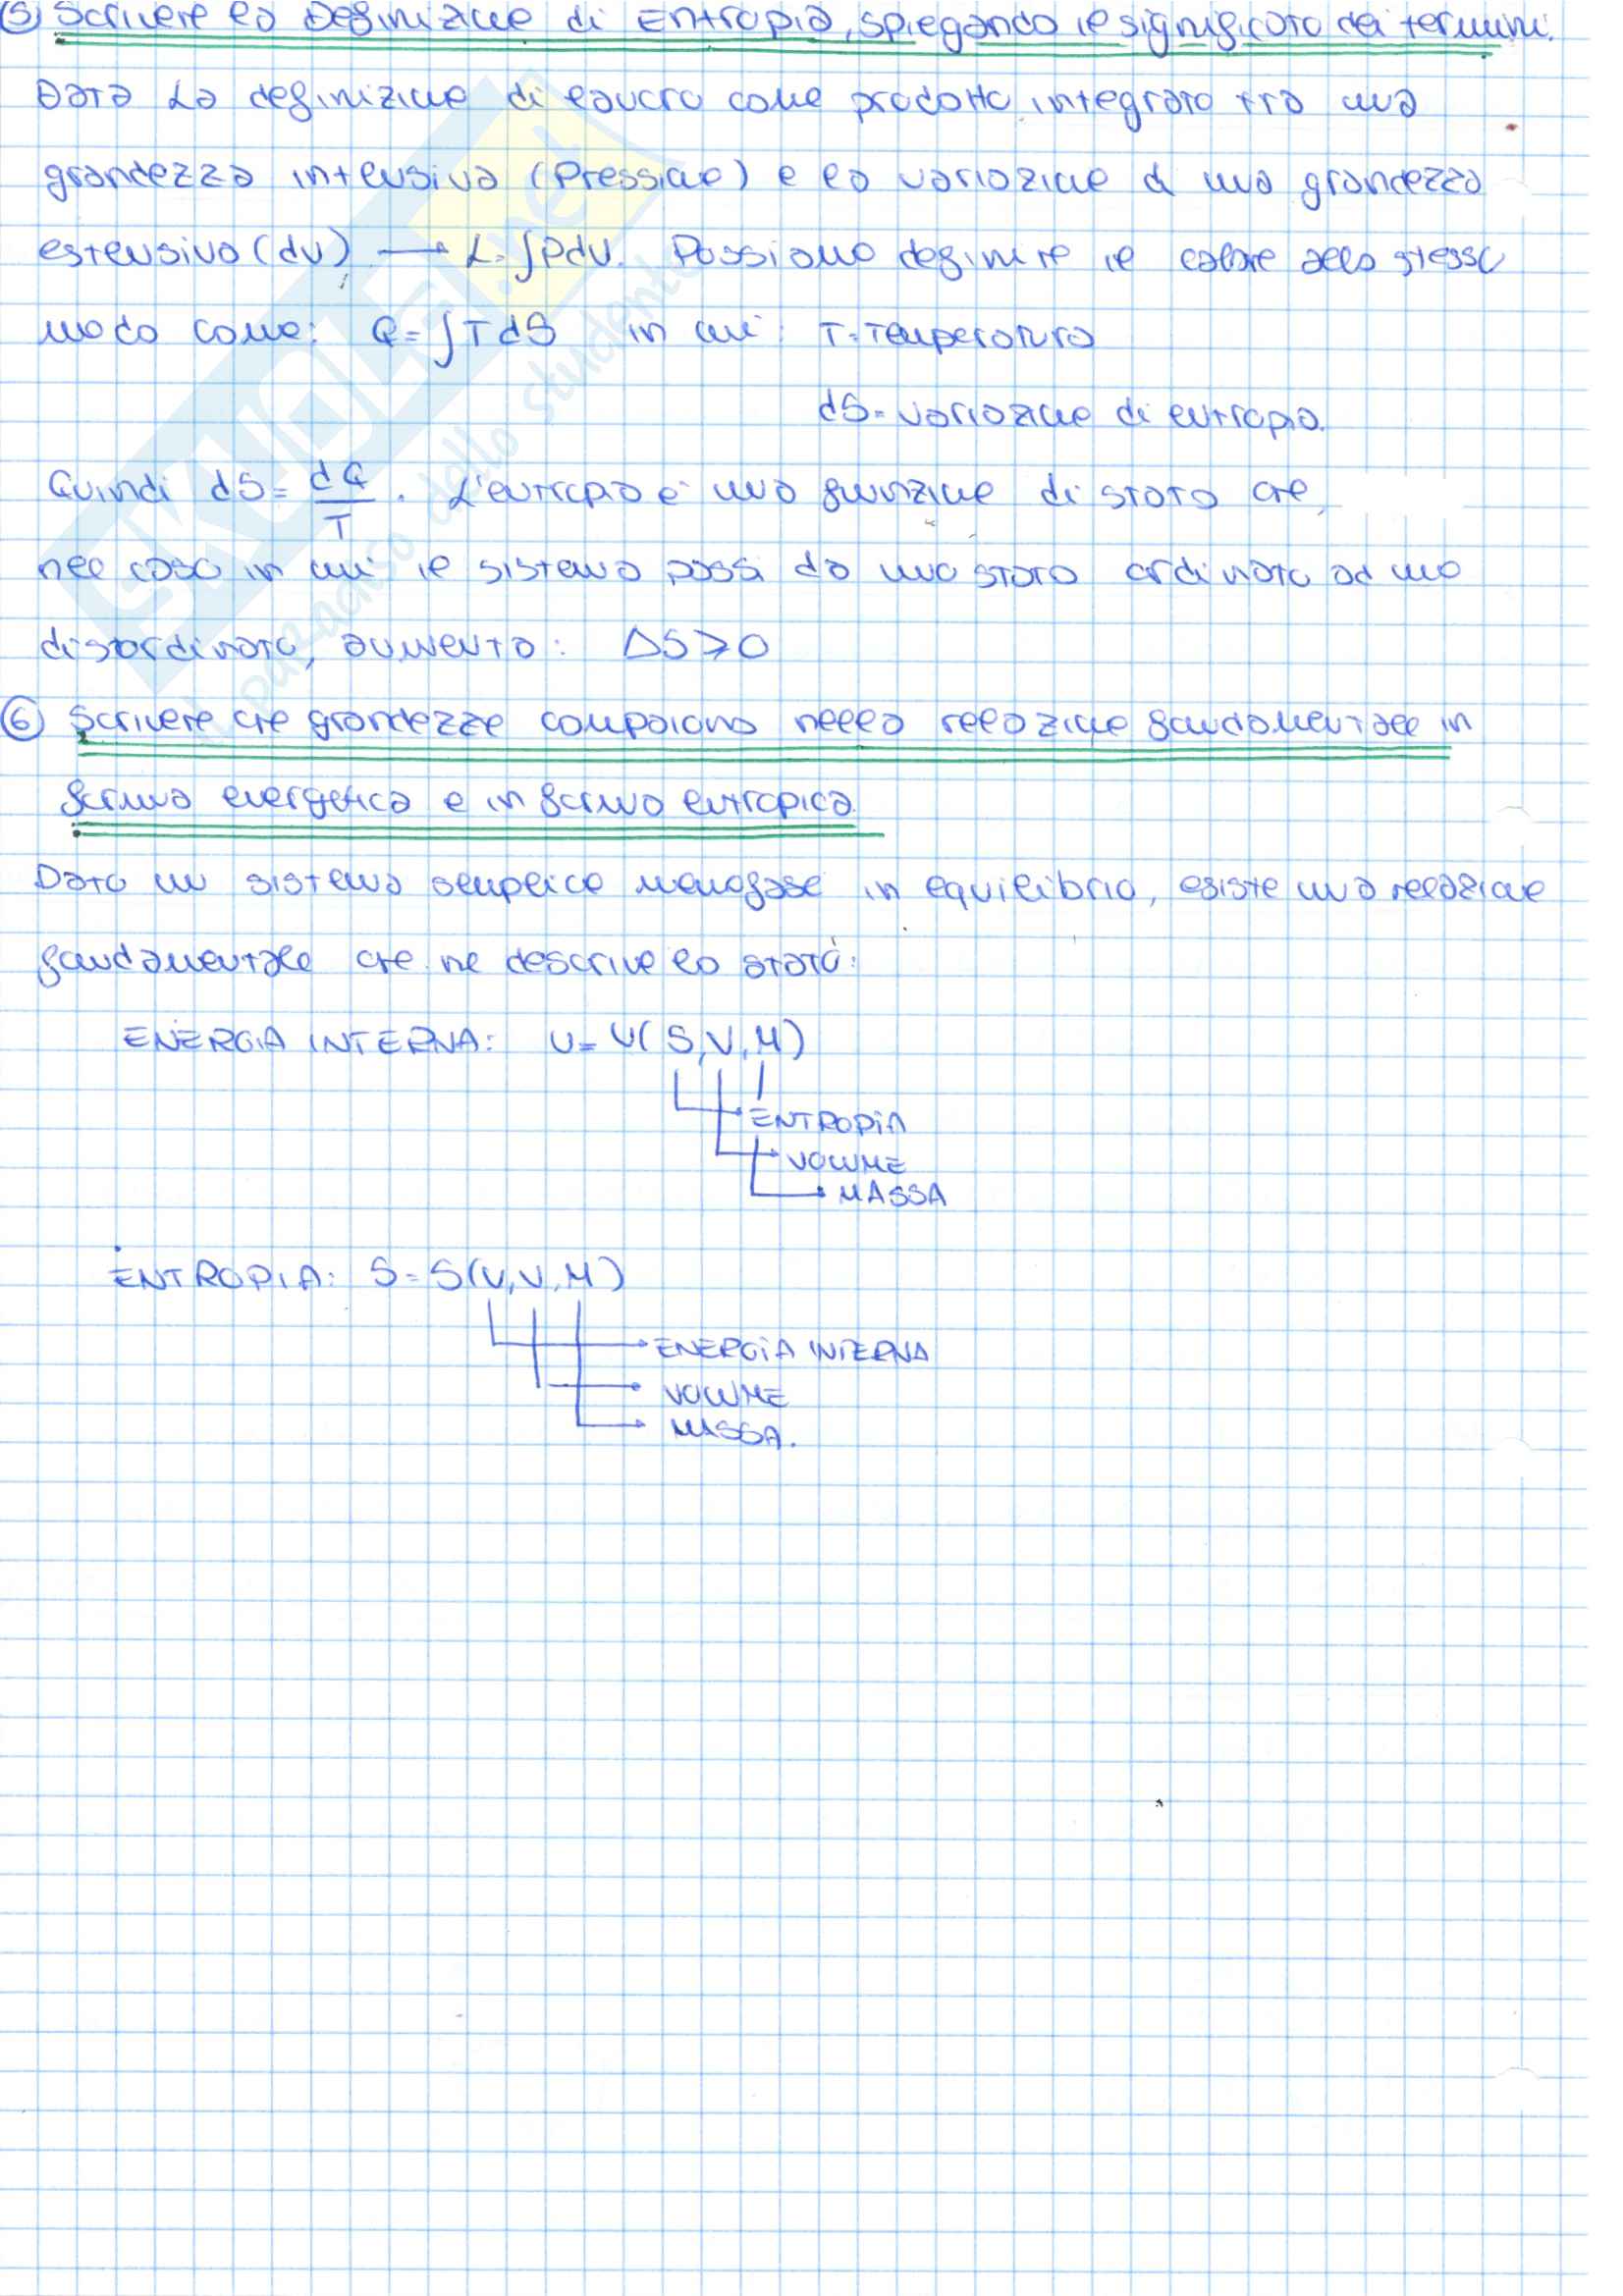 ⑤ Scrivere la Definizione di Entropia, spiegando il significato dei termini.
Data La definizione di lavoro come prodotto integrato tra una
grandezza intensiva (Pressione) e la variazione di una grandezza
estensiva (dV) → L=∫PdV. Possiamo definire il calore dello stesso
modo come: Q=∫TdS in cui: T=Temperatura
dS=variazione di entropia.
Quindi dS=dQ/T. L'entropia è una funzione di stato che,
nel caso in cui il sistema passi da uno stato ordinato ad uno
disordinato, aumenta: ΔS≥0
⑥ Scrivere che grandezze compaiono nella relazione fondamentale in
forma energetica e in forma entropica.
Dato un sistema semplice monofase in equilibrio, esiste una relazione
fondamentale che ne descrive lo stato:
ENERGIA INTERNA: U=U(S,V,M)
ENTROPIA
VOLUME
MASSA
ENTROPIA: S=S(U,V,M)
ENERGIA INTERNA
VOLUME
MASSA.
SKUOLA.net
il paradiso dello studente